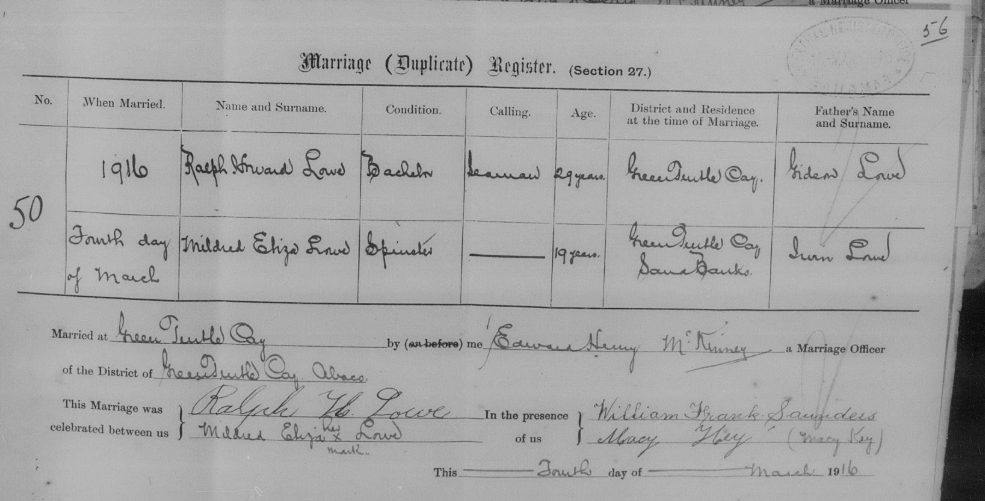 a Marriage Officer
56
Marriage (Duplicate) Register. (Section 27.)
No. When Married. Name and Surname. Condition. Calling. Age. District and Residence at the time of Marriage. Father's Name and Surname.
50
1916 Ralph Howard Lowe Bachelor Seaman 29 years. Green Turtle Cay. Gideon Lowe
Fourth day of March Mildred Eliza Lowe Spinster 19 years. Green Turtle Cay Sand Banks. Lowe
Married at Green Turtle Cay by (or before) me Edward Henry McKinney a Marriage Officer
of the District of Green Turtle Cay Abaco.
This Marriage was celebrated between us } Ralph H. Lowe
Mildred Eliza her x mark Lowe
In the presence of us } William Frank Saunders
Macy Key (Macy Key)
This Fourth day of March 1916